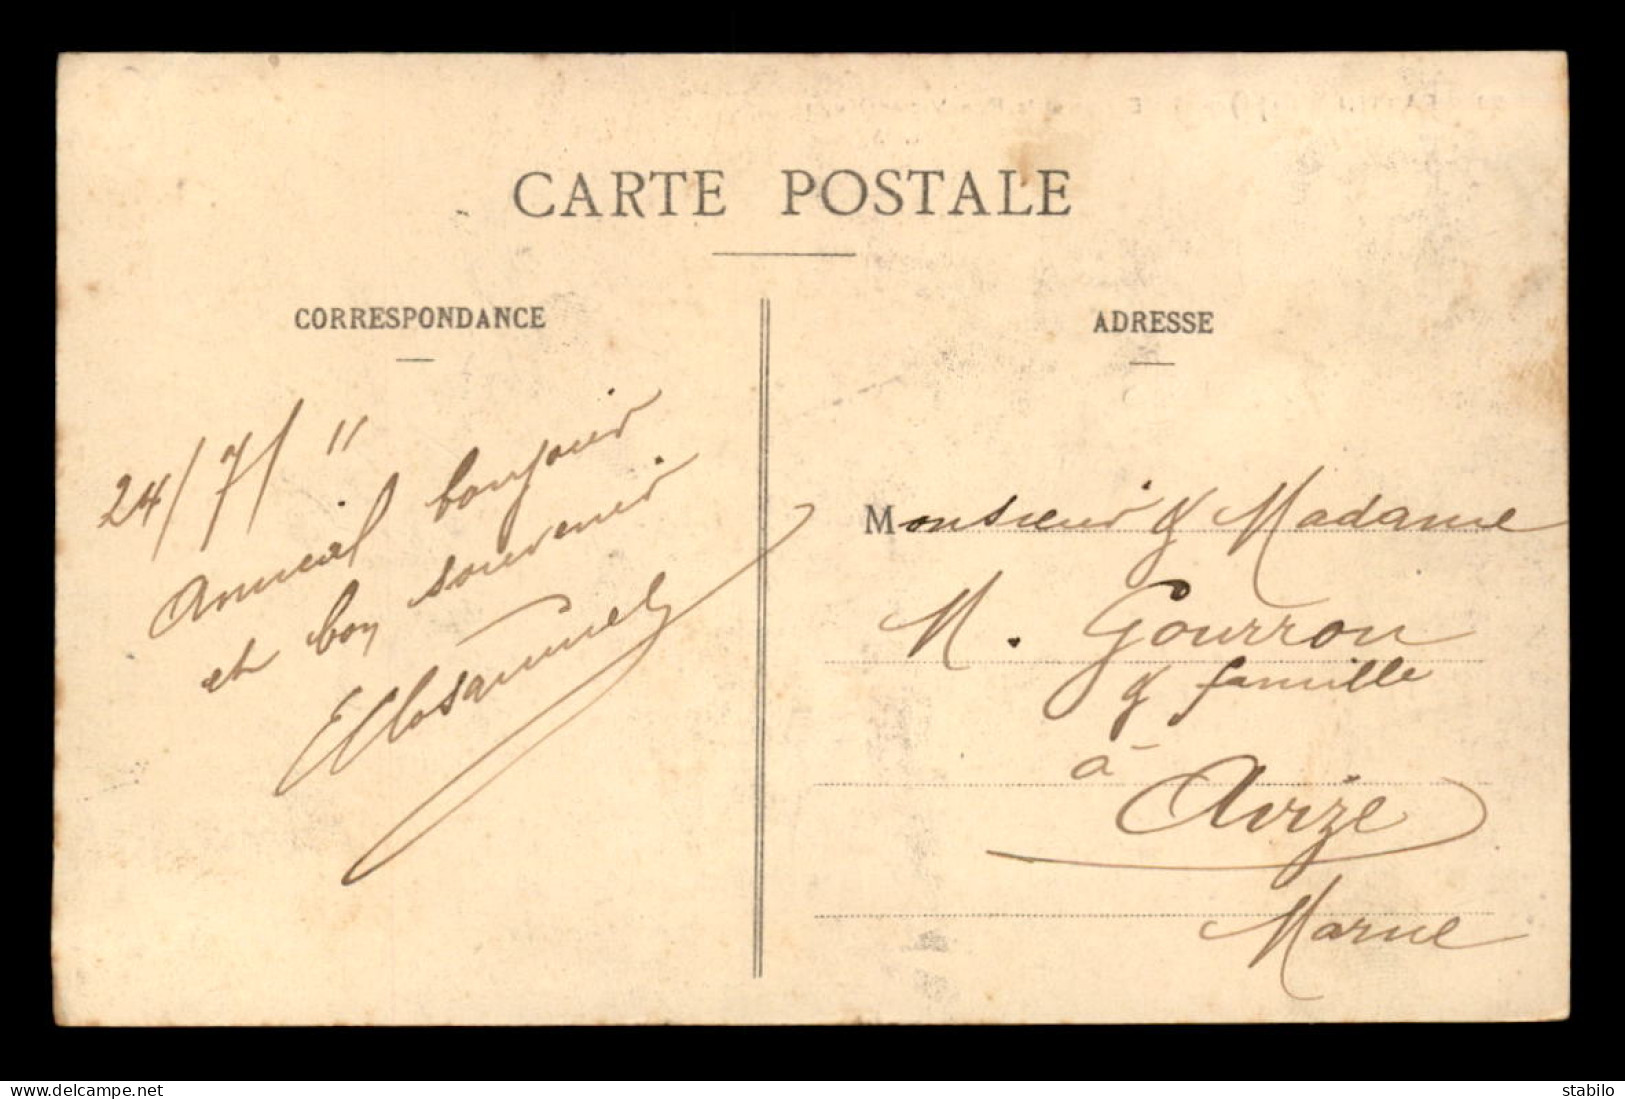 CARTE POSTALE
CORRESPONDANCE
24/7/11
Amical bonjour
et bon souvenir
ADRESSE
Monsieur & Madame
M. Gourron
& famille
à Avize
Marne
delcampe.net
stabilo